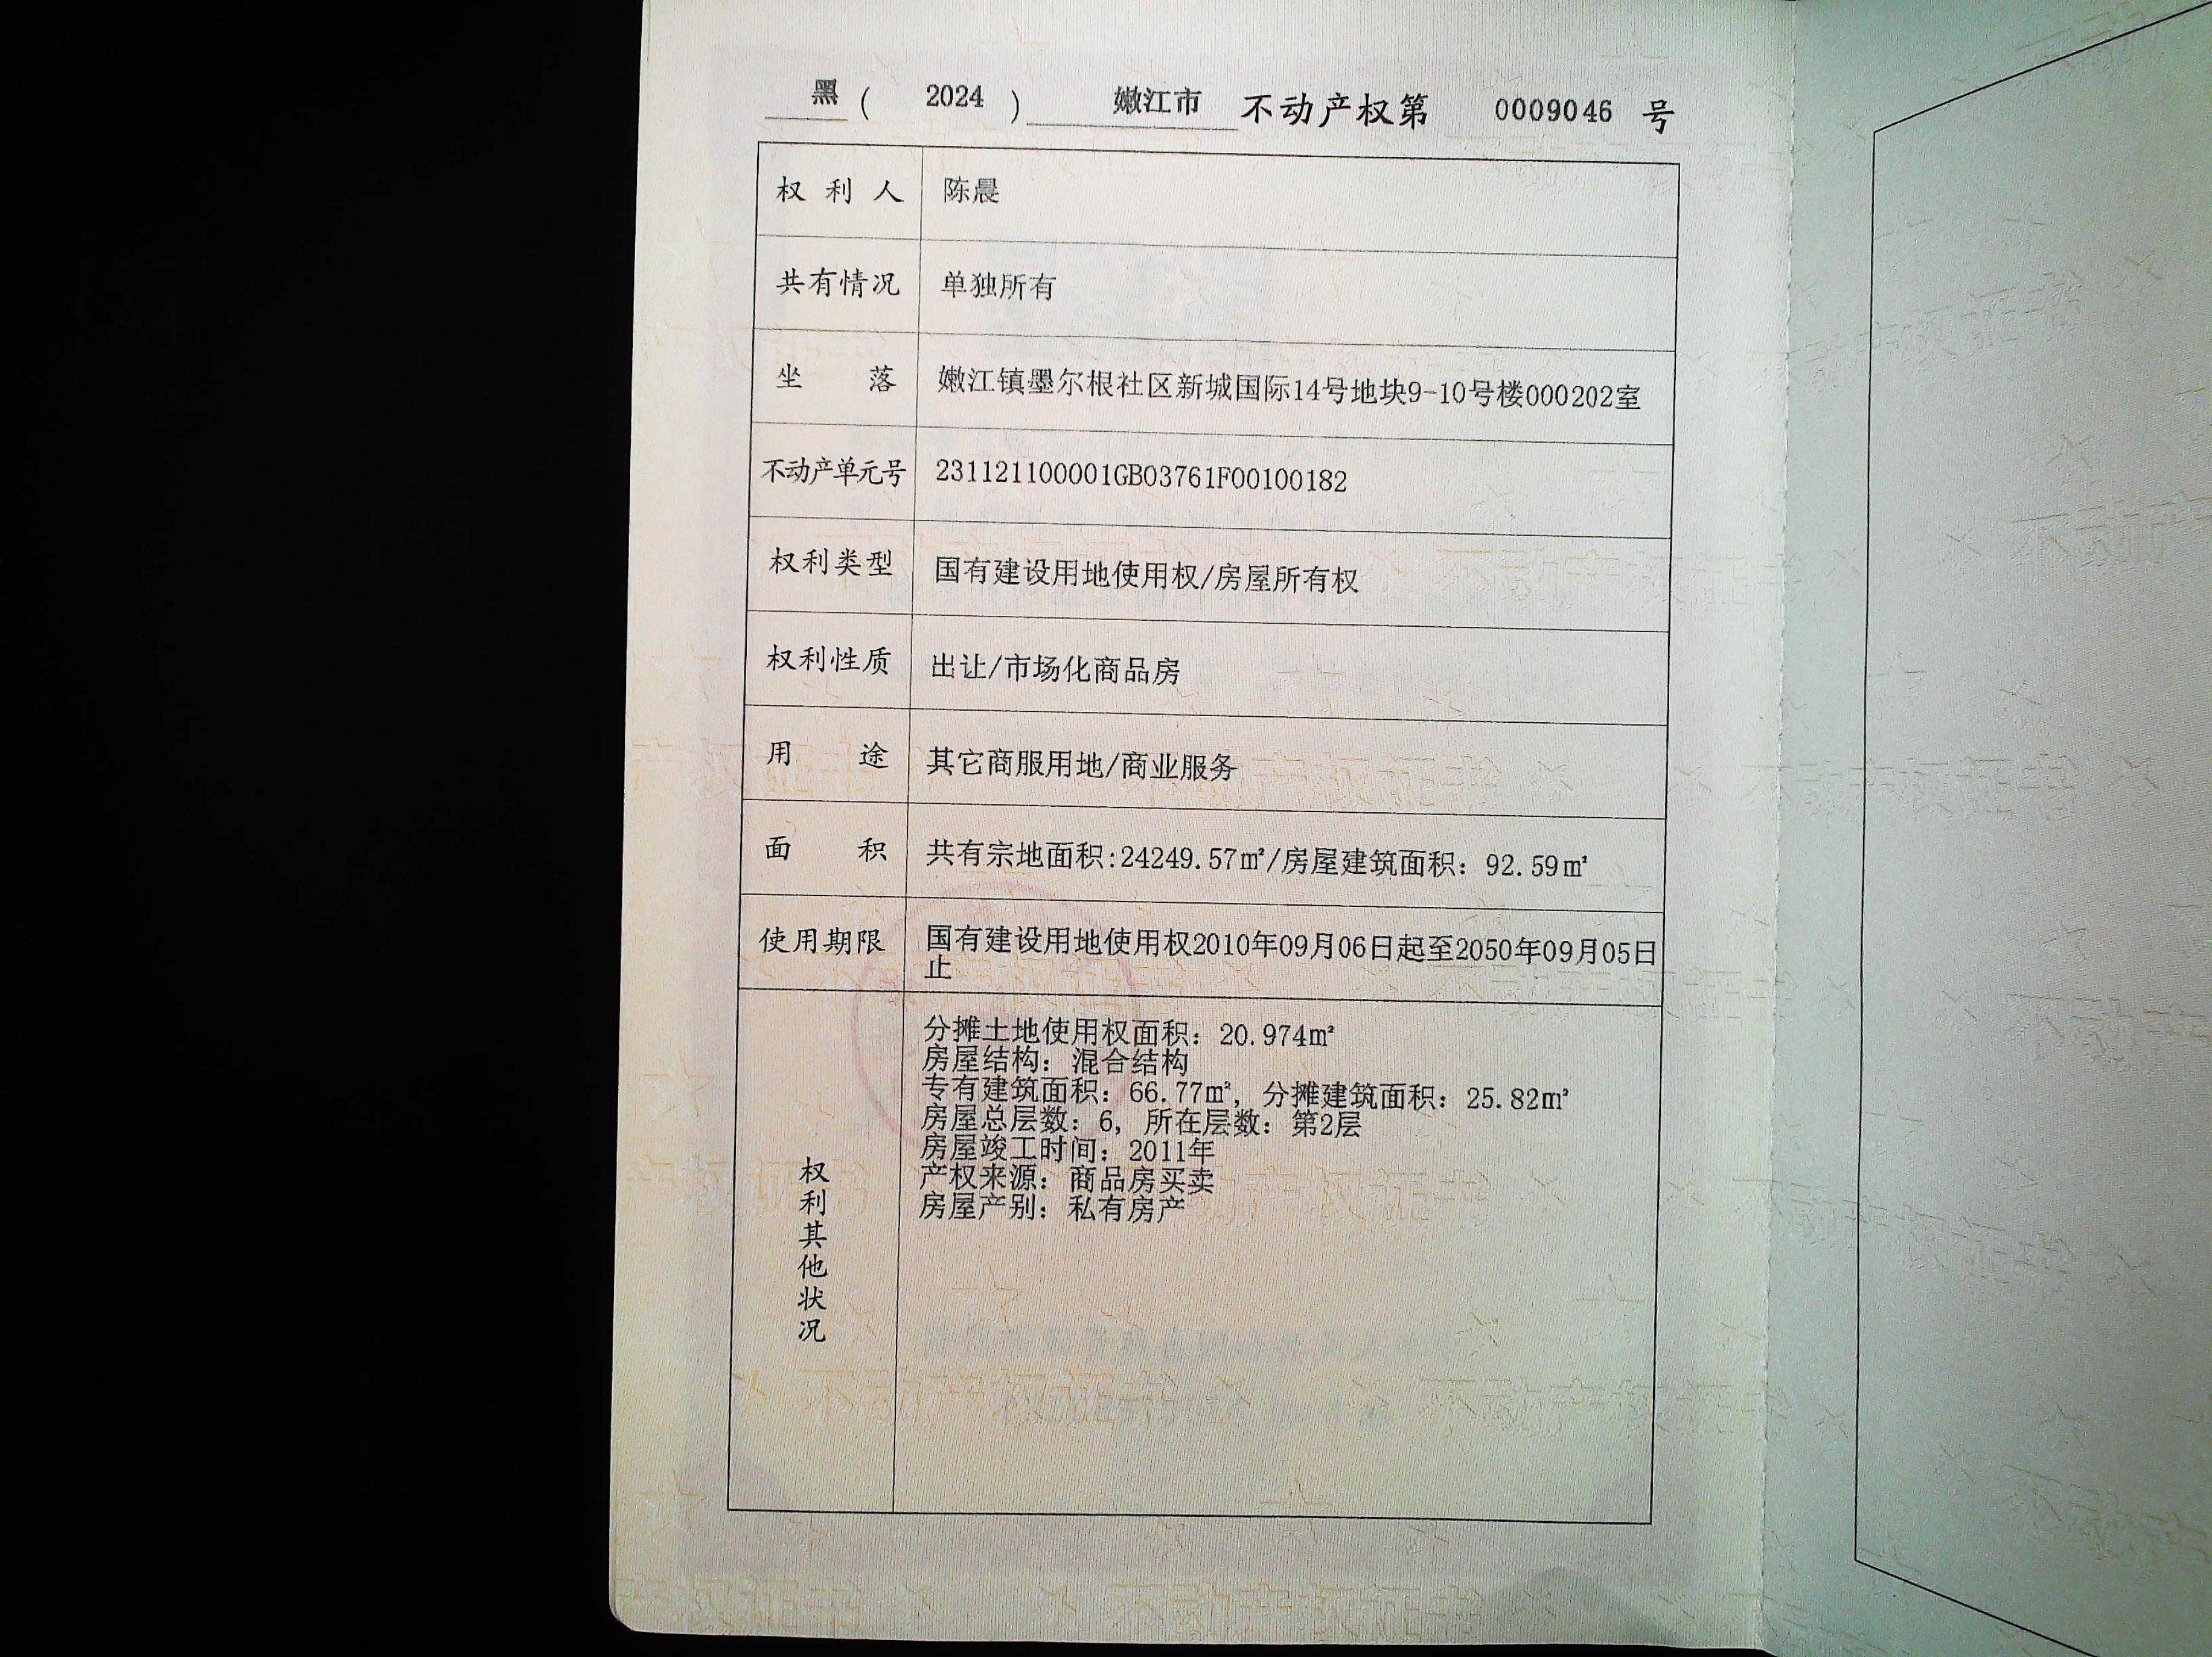 黑（2024）嫩江市不动产权第0009046号
权利人 陈晨
共有情况 单独所有
坐落 嫩江镇墨尔根社区新城国际14号地块9-10号楼000202室
不动产单元号 231121100001GB03761F00100182
权利类型 国有建设用地使用权/房屋所有权
权利性质 出让/市场化商品房
用途 其它商服用地/商业服务
面积 共有宗地面积:24249.57㎡/房屋建筑面积：92.59㎡
使用期限 国有建设用地使用权2010年09月06日起至2050年09月05日
止
权利其他状况
分摊土地使用权面积：20.974㎡
房屋结构：混合结构
专有建筑面积：66.77㎡，分摊建筑面积：25.82㎡
房屋总层数：6，所在层数：第2层
房屋竣工时间：2011年
产权来源：商品房买卖
房屋产别：私有房产